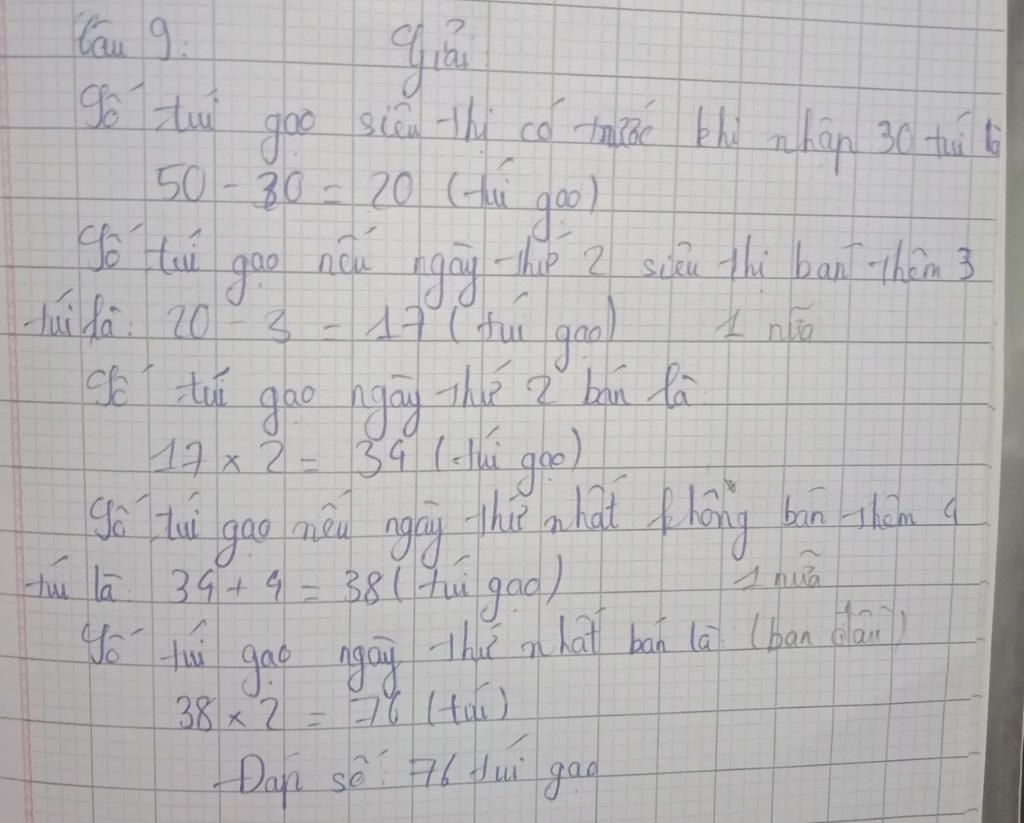 Câu 9: Giải
Số túi gạo siêu thị có trước khi nhập 30 túi là
50 - 30 = 20 (túi gạo)
Số túi gạo nếu ngày thứ 2 siêu thị bán thêm 3
túi là: 20 - 3 = 17 (túi gạo) 1 nữa
Số túi gạo ngày thứ 2 bán là
17 x 2 = 34 (túi gạo)
Số túi gạo nếu ngày thứ nhất không bán thêm 4
túi là: 34 + 4 = 38 (túi gạo) 1 nửa
Số túi gạo ngày thứ nhất bán là (ban đầu)
38 x 2 = 76 (túi)
Đáp số: 76 túi gạo